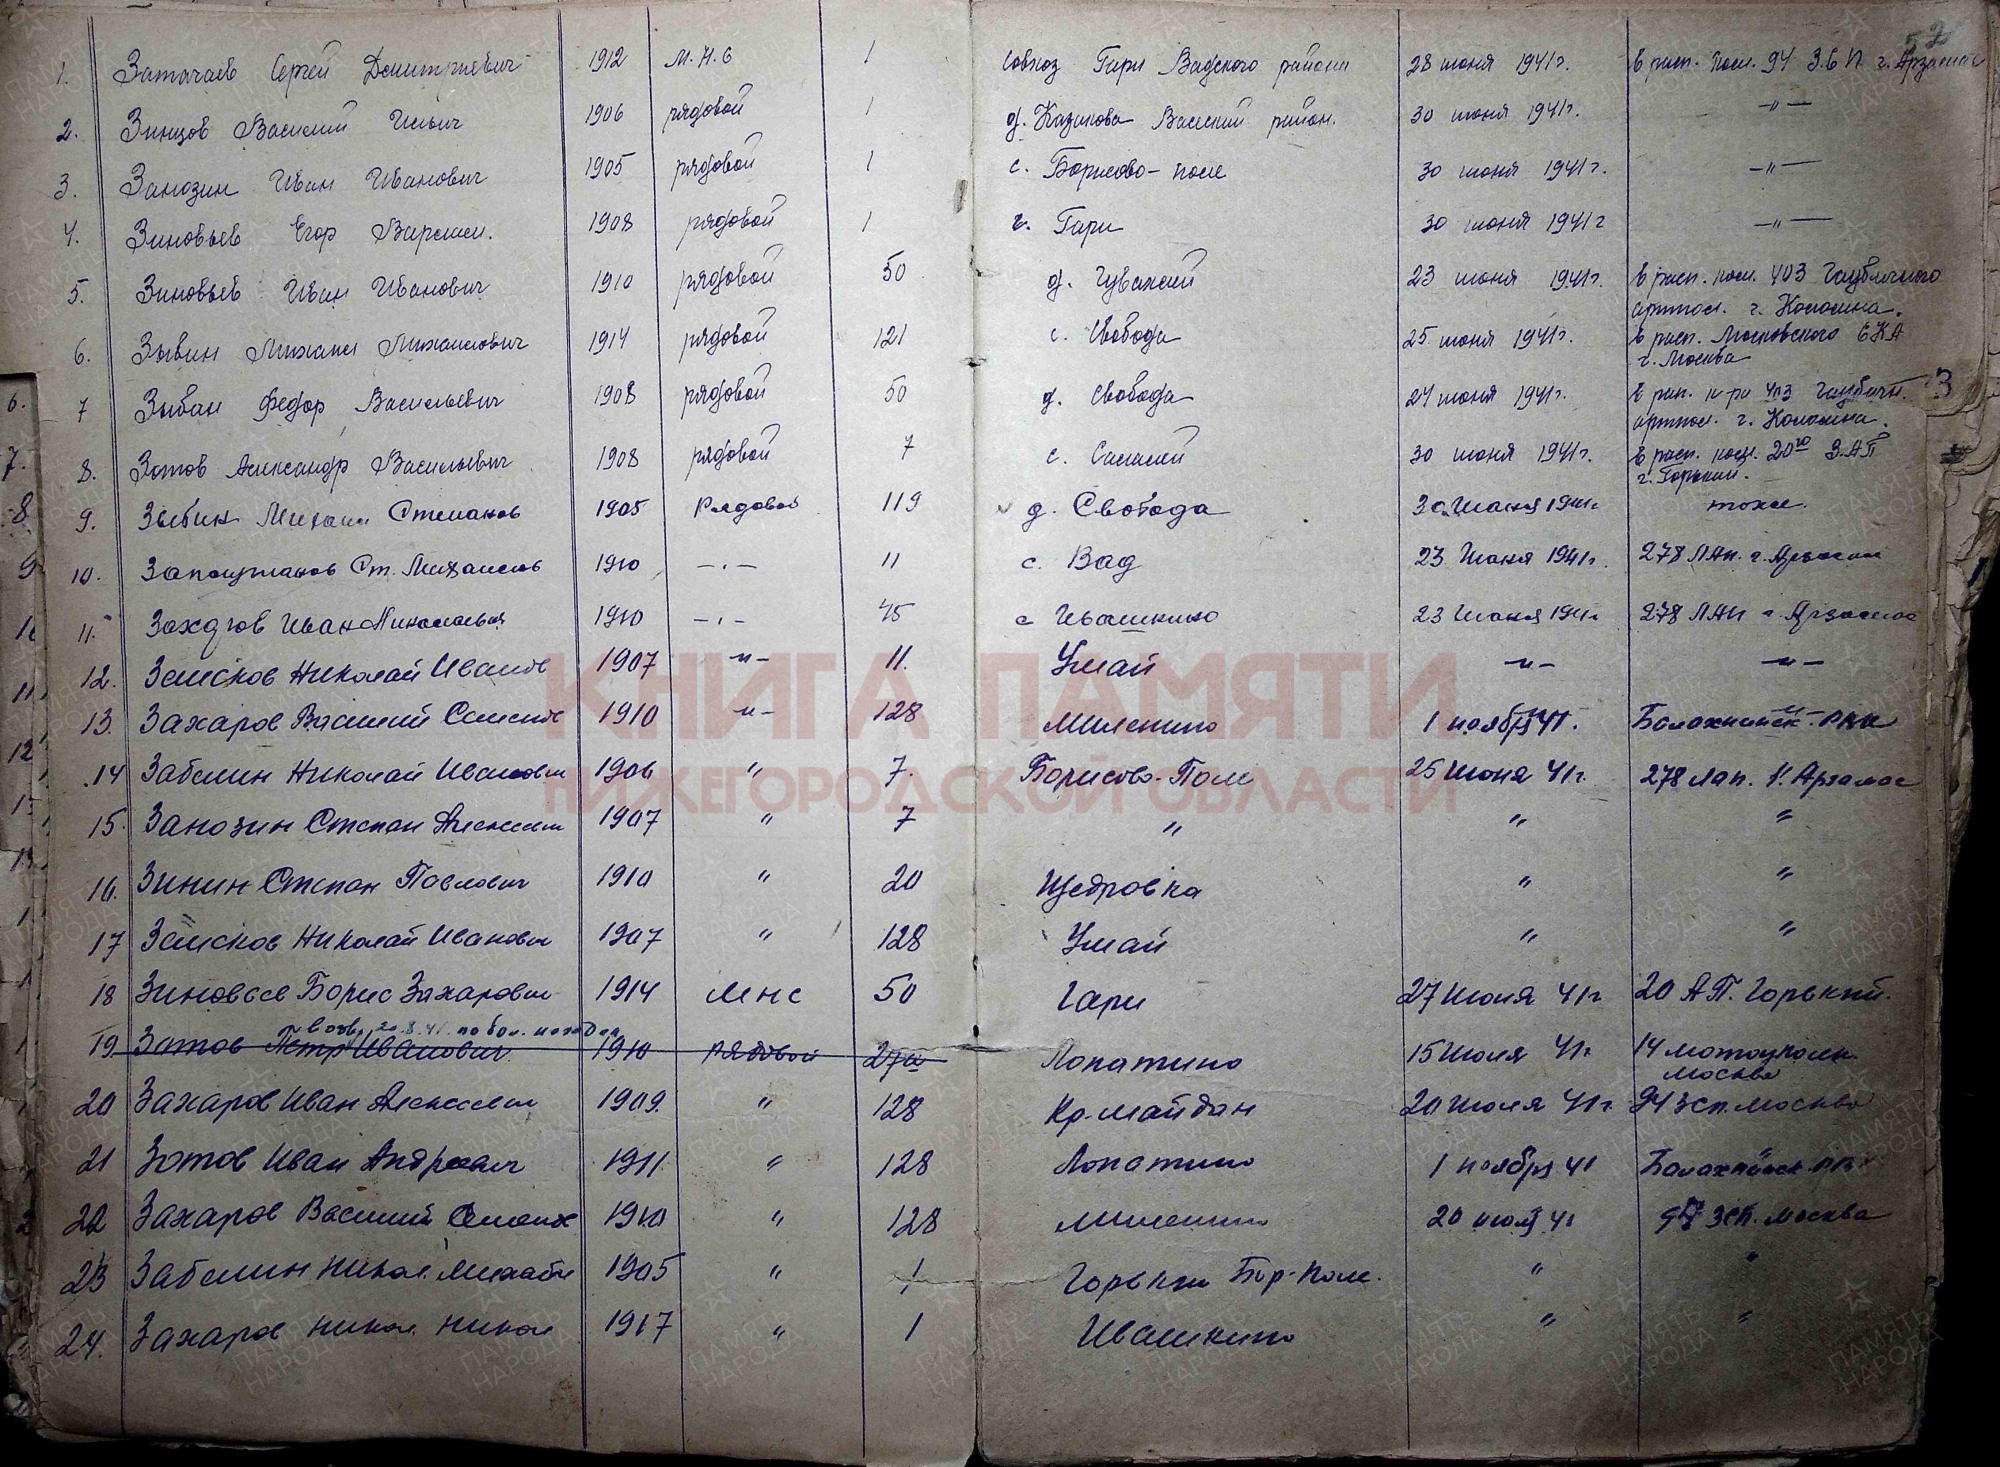 1. Затачаев Сергей Дмитриевич 1912 М.Н.С 1 совхоз Гари Вадского района 28 июня 1941г. В расп. 94 г. Арзамас
2. Зинцов Василий Ильич 1906 рядовой 1 д. Казакова район. 30 июня 1941г. -"-
3. Занозин Иван Иванович 1905 рядовой 1 с. Борисово-поле 30 июня 1941г. -"-
4. Зиновьев Егор 1908 рядовой 1 Гари 30 июня 1941г -"-
5. Зиновьев Иван Иванович 1910 рядовой 50 д. 23 июня 1941г. В расп. ком. 403 Гаубичного
артпол. г. Коломна.
6. Зывин Михаил Михаилович 1914 рядовой 121 с. Свобода 25 июня 1941г. В расп. Московского
г. Москва
7 Зыбан Федор Васильевич 1908 рядовой 50 д. Свобода 24 июня 1941г. В рап. к-ра 403 Гаубичн.
артпол. г. Коломна.
8. Зотов Александр Васильевич 1908 рядовой 7 с. 30 июня 1941г. В расп. 20го З.АП
г. Горький.
9. Зыбин Михаил Степанов 1905 Рядовой 119 д. Свобода 30 Июня 1941г тоже.
10. Ст. Михаилов 1910 -"- 11 с. Вад 23 Июня 1941г. 278 ЛАП. г. Арзамас
11. Иван Николаевич 1910 -"- 45 с Ивашкино 23 Июня 1941г 278 ЛАП г. Арзамас
12. Земсков Николай Иванов 1907 -"- 11. Умай -"- -"-
КНИГА ПАМЯТИ
13. Захаров Василий Семенов 1910 -"- 128 Миленино 1 ноября 41. Балахнинск. РВК
14 Забелин Николай Иванович 1906 " 7. Борисово-Поле 25 Июня 41г. 278 лап. Арзамас
НИЖЕГОРОДСКОЙ ОБЛАСТИ
15. Занозин Степан Алексеевич 1907 " 7 " " "
16. Зинин Степан Павлович 1910 " 20 Щедровка " "
17 Земсков Николай Иванович 1907 " 128 Умай " "
18 Зиновьев Борис Захарович 1914 МНС 50 Гари 27 Июня 41г 20 АП. Горький.
20.8.41. по бол.
19 Зотов Петр Иванович 1910 рядовой 27а Лопатино 15 Июля 41г 14 мотоцполк
Москва
20 Захаров Иван Алексеевич 1909. " 128 Кр. Майдан 20 Июля 41г. 94 ЗСП. Москва
21 Зотов Иван Андреевич 1911. " 128 Лопатино 1 ноября 41 Балахнинск
22 Захаров Василий Семенов 1910 " 128 Миленино 20 июля 41 ЗСП. Москва
23 Забелин Никол. Михайл 1905 " 1 Горький Бор-Поле. " "
24. Захаров Никол. Никол 1917 " 1 Ивашкино " "